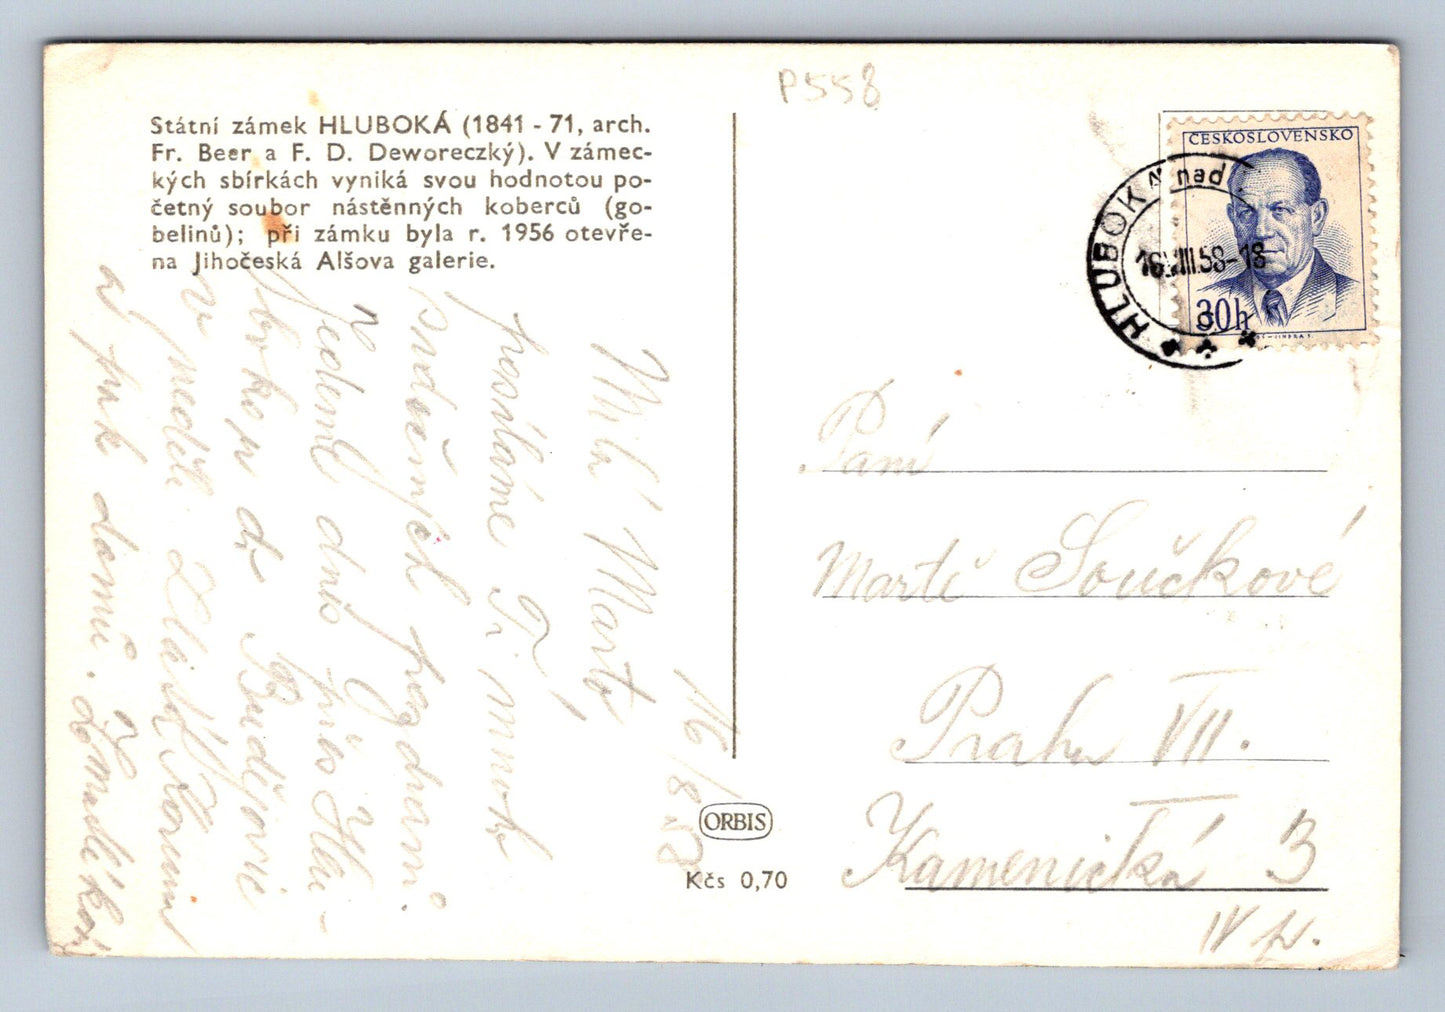 P558
Státní zámek HLUBOKÁ (1841 - 71, arch.
Fr. Beer a F. D. Deworeczký). V zámec-
kých sbírkách vyniká svou hodnotou po-
četný soubor nástěnných koberců (go-
belinů); při zámku byla r. 1956 otevře-
na Jihočeská Alšova galerie.
ČESKOSLOVENSKO
30h
HLUBOKÁ nad
16.VIII.58-18
16/8 58
Milá Marto,
posíláme Ti mnoho
srdečných pozdravů.
Jedeme dnes přes Hlu-
bokou do Budějovic
v neděli
a pak domů.
ORBIS
Kčs 0,70
Paní
Martě Součkové
Praha VII.
Kamenická 3
IV p.